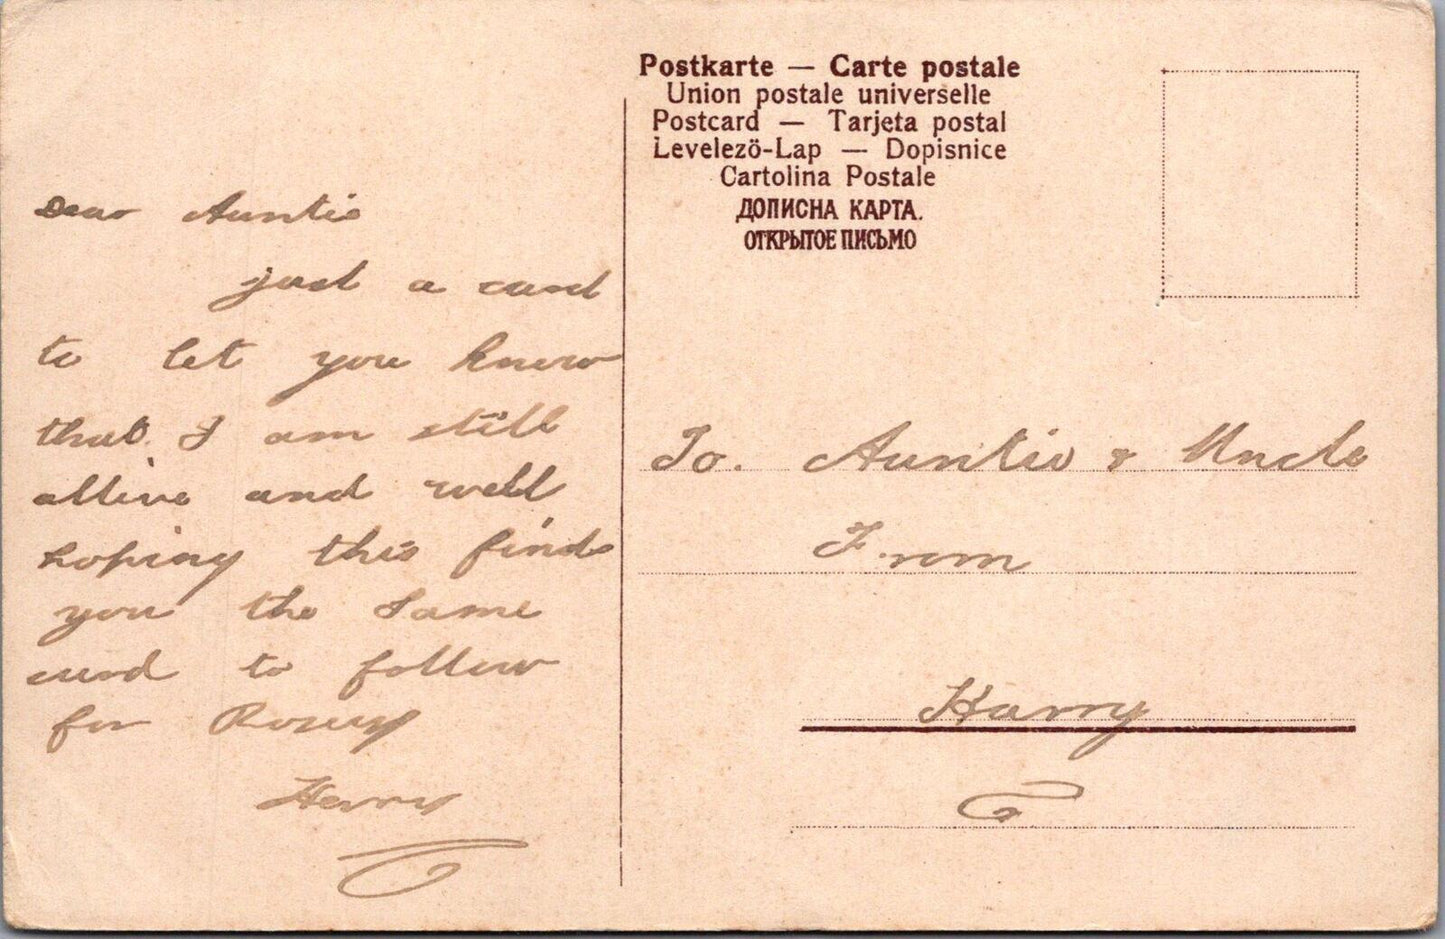 Postkarte — Carte postale
Union postale universelle
Postcard — Tarjeta postal
Levelezö-Lap — Dopisnice
Cartolina Postale
ДОПИСНА КАРТА.
ОТКРЫТОЕ ПИСЬМО
Dear Auntie
just a card
to let you know
that I am still
allive and well
hoping this finds
you the same
card to follow
for Rosey
Harry
To. Auntie & Uncle
From
Harry